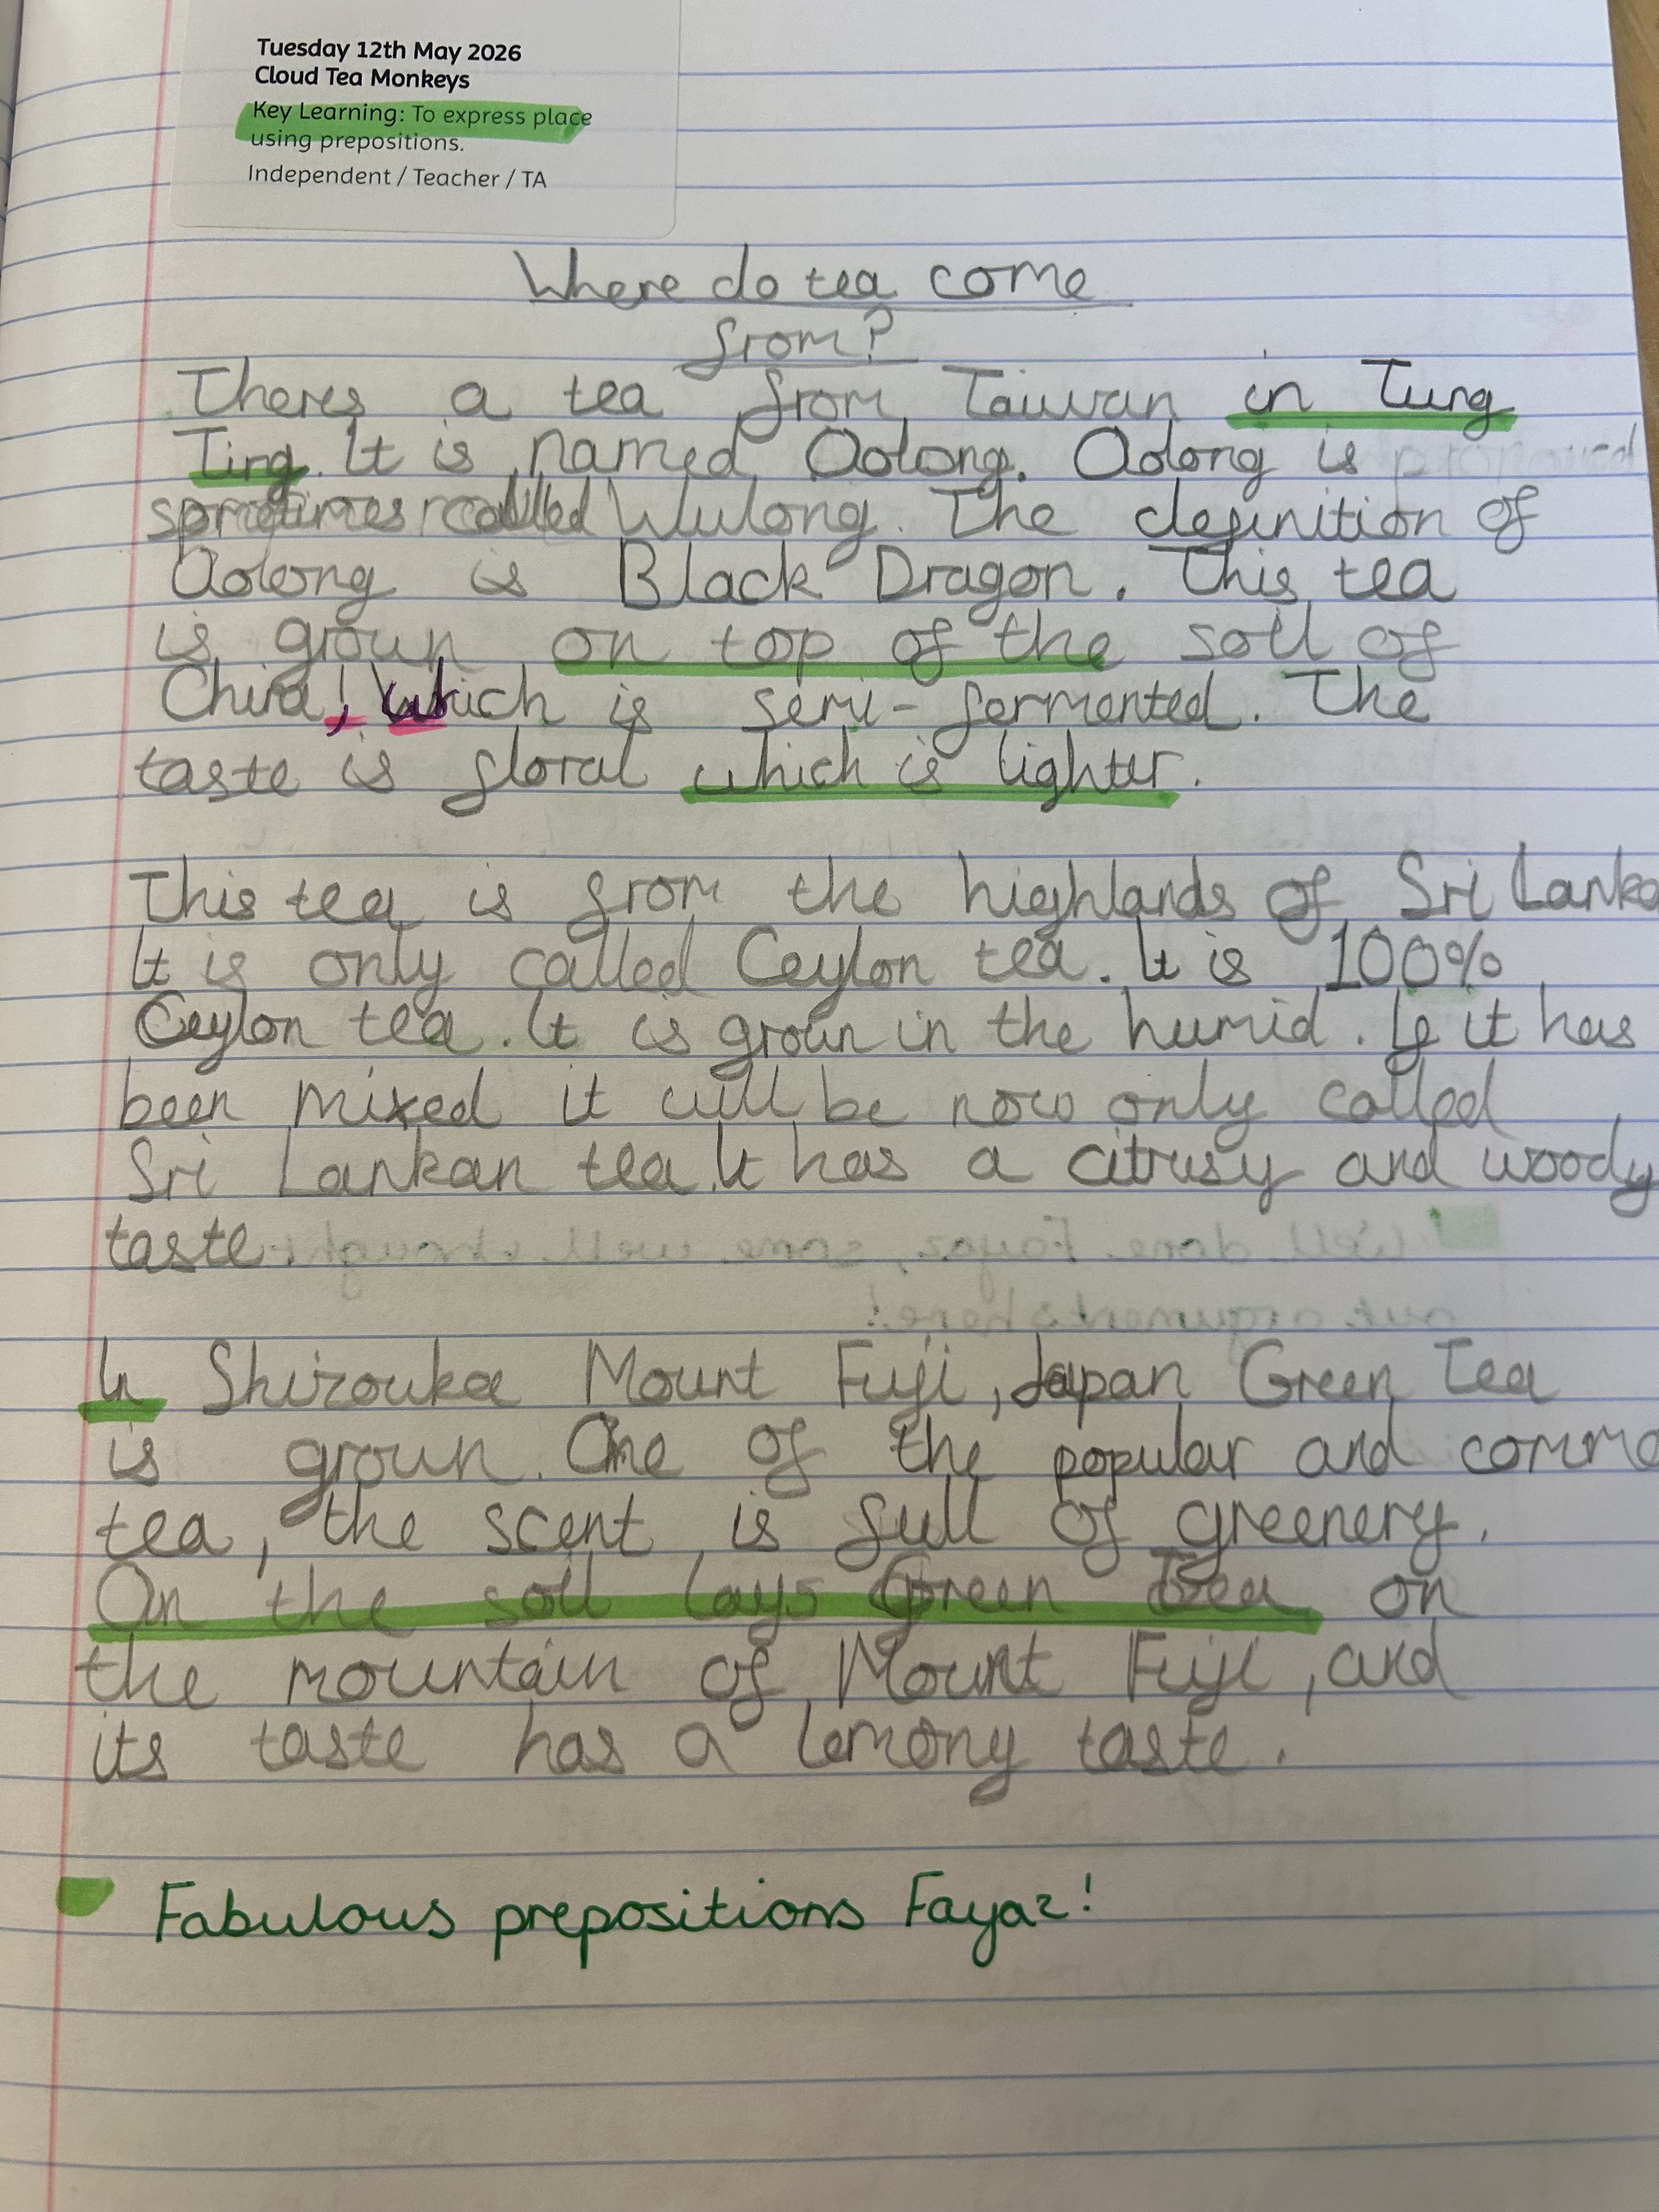 Tuesday 12th May 2026
Cloud Tea Monkeys
Key Learning: To express place
using prepositions.
Independent / Teacher / TA
Where do tea come
from?
Theres a tea from Taiwan in Tung
Ting. It is named Oolong. Oolong is
sometimes called Wulong. The definition of
Oolong is Black Dragon. This tea
is groun on top of the soil of
China, which is semi-fermented. The
taste is floral which is lighter.
This tea is from the highlands of Sri Lanka
It is only called Ceylon tea. It is 100%
Ceylon tea. It is groun in the humid. If it has
been mixed it will be now only called
Sri Lankan tea. It has a citrusy and woody
taste.
In Shizouka Mount Fuji, Japan Green Tea
is groun. One of the popular and commo
tea, the scent is full of greenery.
On the soil lays Green Tea on
the mountain of Mount Fuji, and
its taste has a lemony taste.
Fabulous prepositions Fayaz!